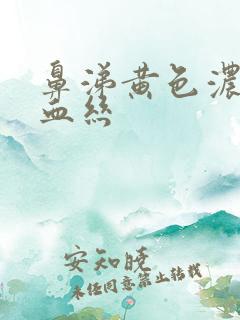 鼻涕黄色浓
血丝
安知晓
未经同意禁止转载